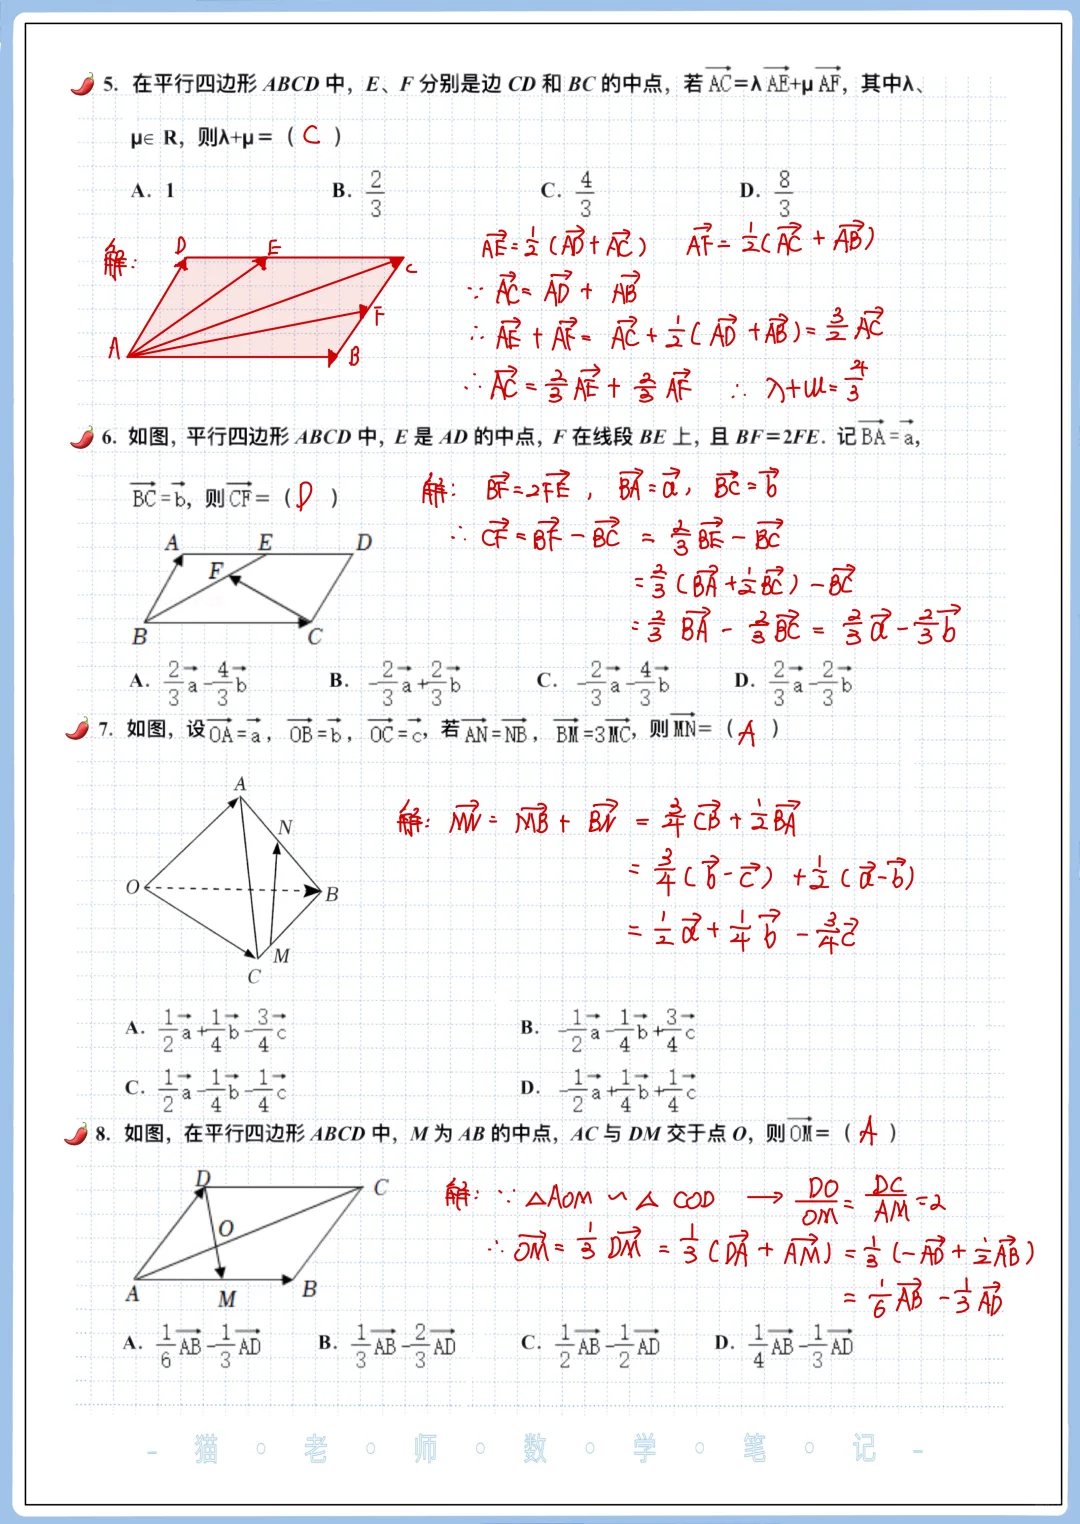 5. 在平行四边形 ABCD 中，E、F 分别是边 CD 和 BC 的中点，若 $\overrightarrow{AC}=λ\overrightarrow{AE}+μ\overrightarrow{AF}$，其中λ、
μ∈ R，则λ+μ＝（ C ）
A. 1 B. $\frac{2}{3}$ C. $\frac{4}{3}$ D. $\frac{8}{3}$
解:
D E C
F
A B
$\overrightarrow{AE}=\frac{1}{2}(\overrightarrow{AD}+\overrightarrow{AC})$ $\overrightarrow{AF}=\frac{1}{2}(\overrightarrow{AC}+\overrightarrow{AB})$
∵ $\overrightarrow{AC}=\overrightarrow{AD}+\overrightarrow{AB}$
∴ $\overrightarrow{AE}+\overrightarrow{AF}=\overrightarrow{AC}+\frac{1}{2}(\overrightarrow{AD}+\overrightarrow{AB})=\frac{3}{2}\overrightarrow{AC}$
∴ $\overrightarrow{AC}=\frac{2}{3}\overrightarrow{AE}+\frac{2}{3}\overrightarrow{AF}$ ∴ $λ+μ=\frac{4}{3}$
6. 如图，平行四边形 ABCD 中，E 是 AD 的中点，F 在线段 BE 上，且 BF＝2FE．记 $\overrightarrow{BA}=\vec{a}$，
$\overrightarrow{BC}=\vec{b}$，则 $\overrightarrow{CF}$＝（ D ）
A E D
F
B C
解: $\overrightarrow{BF}=2\overrightarrow{FE}$，$\overrightarrow{BA}=\vec{a}$，$\overrightarrow{BC}=\vec{b}$
∴ $\overrightarrow{CF}=\overrightarrow{BF}-\overrightarrow{BC}=\frac{2}{3}\overrightarrow{BE}-\overrightarrow{BC}$
$=\frac{2}{3}(\overrightarrow{BA}+\frac{1}{2}\overrightarrow{BC})-\overrightarrow{BC}$
$=\frac{2}{3}\overrightarrow{BA}-\frac{2}{3}\overrightarrow{BC}=\frac{2}{3}\vec{a}-\frac{2}{3}\vec{b}$
A. $\frac{2}{3}\vec{a}-\frac{4}{3}\vec{b}$ B. $-\frac{2}{3}\vec{a}+\frac{2}{3}\vec{b}$ C. $-\frac{2}{3}\vec{a}-\frac{4}{3}\vec{b}$ D. $\frac{2}{3}\vec{a}-\frac{2}{3}\vec{b}$
7. 如图，设 $\overrightarrow{OA}=\vec{a}$，$\overrightarrow{OB}=\vec{b}$，$\overrightarrow{OC}=\vec{c}$，若 $\overrightarrow{AN}=\overrightarrow{NB}$，$\overrightarrow{BM}=3\overrightarrow{MC}$，则 $\overrightarrow{MN}$＝（ A ）
A
N
O B
M
C
解: $\overrightarrow{MN}=\overrightarrow{MB}+\overrightarrow{BN}=\frac{3}{4}\overrightarrow{CB}+\frac{1}{2}\overrightarrow{BA}$
$=\frac{3}{4}(\vec{b}-\vec{c})+\frac{1}{2}(\vec{a}-\vec{b})$
$=\frac{1}{2}\vec{a}+\frac{1}{4}\vec{b}-\frac{3}{4}\vec{c}$
A. $\frac{1}{2}\vec{a}+\frac{1}{4}\vec{b}-\frac{3}{4}\vec{c}$ B. $-\frac{1}{2}\vec{a}-\frac{1}{4}\vec{b}+\frac{3}{4}\vec{c}$
C. $\frac{1}{2}\vec{a}-\frac{1}{4}\vec{b}-\frac{1}{4}\vec{c}$ D. $-\frac{1}{2}\vec{a}+\frac{1}{4}\vec{b}+\frac{1}{4}\vec{c}$
8. 如图，在平行四边形 ABCD 中，M 为 AB 的中点，AC 与 DM 交于点 O，则 $\overrightarrow{OM}$＝（ A ）
D C
O
A M B
解: ∵ △AOM ∽ △ COD → $\frac{DO}{OM}=\frac{DC}{AM}=2$
∴ $\overrightarrow{OM}=\frac{1}{3}\overrightarrow{DM}=\frac{1}{3}(\overrightarrow{DA}+\overrightarrow{AM})=\frac{1}{3}(-\overrightarrow{AD}+\frac{1}{2}\overrightarrow{AB})$
$=\frac{1}{6}\overrightarrow{AB}-\frac{1}{3}\overrightarrow{AD}$
A. $\frac{1}{6}\overrightarrow{AB}-\frac{1}{3}\overrightarrow{AD}$ B. $\frac{1}{3}\overrightarrow{AB}-\frac{2}{3}\overrightarrow{AD}$ C. $\frac{1}{2}\overrightarrow{AB}-\frac{1}{2}\overrightarrow{AD}$ D. $\frac{1}{4}\overrightarrow{AB}-\frac{1}{3}\overrightarrow{AD}$
- 猫 · 老 · 师 · 数 · 学 · 笔 · 记 -